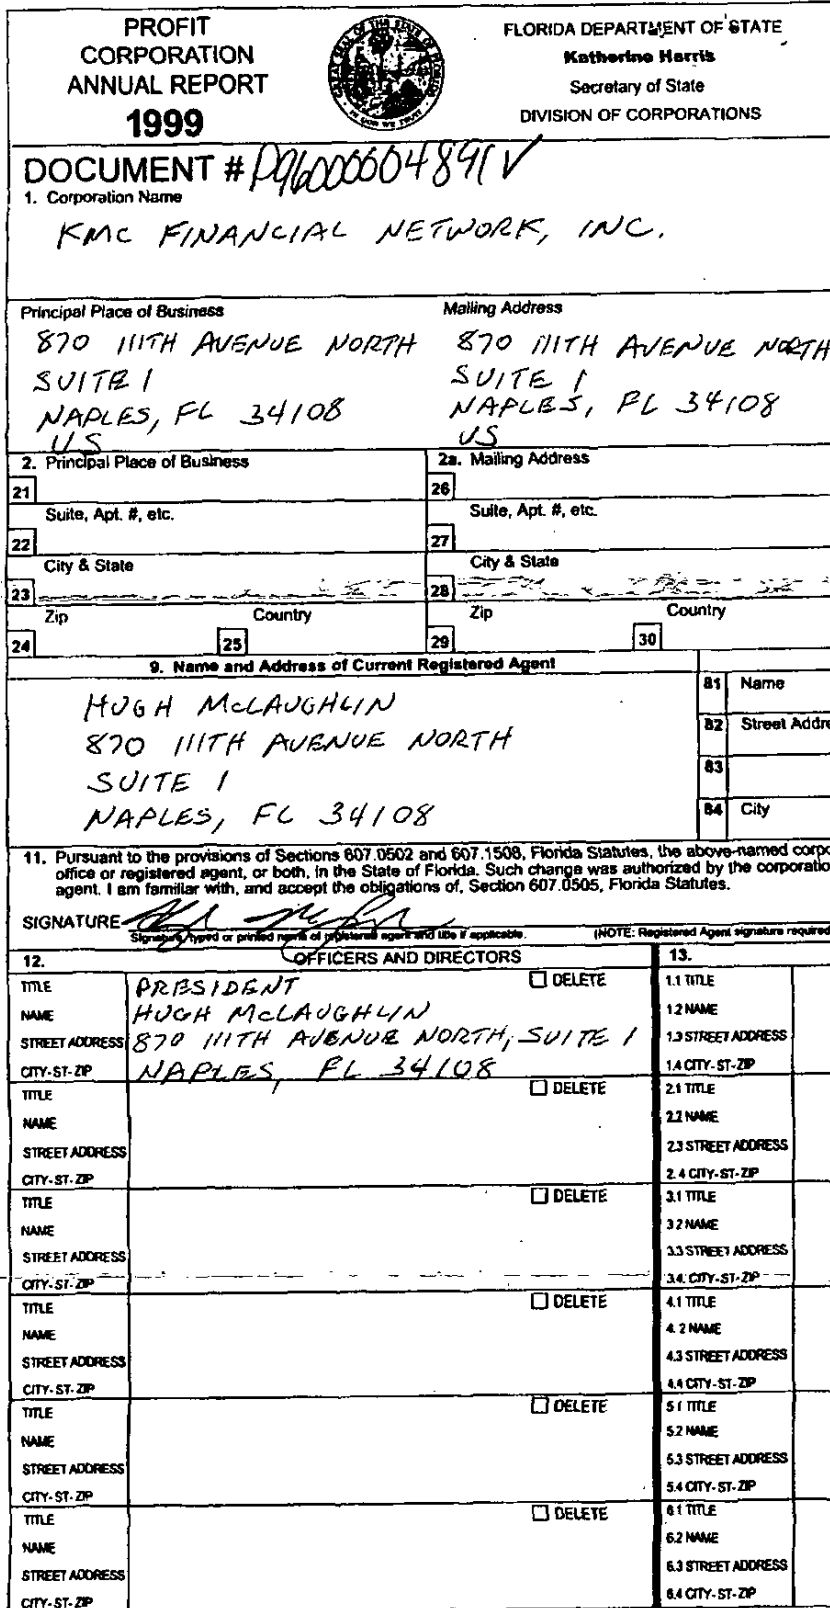 PROFIT
CORPORATION
ANNUAL REPORT
1999
FLORIDA DEPARTMENT OF STATE
Katherine Harris
Secretary of State
DIVISION OF CORPORATIONS
DOCUMENT # P96000004891
1. Corporation Name
KMC FINANCIAL NETWORK, INC.
Principal Place of Business
870 111TH AVENUE NORTH
SUITE 1
NAPLES, FL 34108
US
Mailing Address
870 111TH AVENUE NORTH
SUITE 1
NAPLES, FL 34108
US
2. Principal Place of Business
2a. Mailing Address
21
26
Suite, Apt. #, etc.
Suite, Apt. #, etc.
22
27
City & State
City & State
23
28
Zip
Country
Zip
Country
24
25
29
30
9. Name and Address of Current Registered Agent
HUGH McLAUGHLIN
870 111TH AVENUE NORTH
SUITE 1
NAPLES, FL 34108
81 Name
82 Street Addre
83
84 City
11. Pursuant to the provisions of Sections 607.0502 and 607.1508, Florida Statutes, the above-named corpo
office or registered agent, or both, in the State of Florida. Such change was authorized by the corporatio
agent. I am familiar with, and accept the obligations of, Section 607.0505, Florida Statutes.
SIGNATURE
Signature, typed or printed name of registered agent and title if applicable.
(NOTE: Registered Agent signature required
12. OFFICERS AND DIRECTORS
13.
TITLE PRESIDENT DELETE
NAME HUGH McLAUGHLIN
STREET ADDRESS 870 111TH AVENUE NORTH, SUITE 1
CITY-ST-ZIP NAPLES, FL 34108
1.1 TITLE
1.2 NAME
1.3 STREET ADDRESS
1.4 CITY-ST-ZIP
TITLE DELETE
NAME
STREET ADDRESS
CITY-ST-ZIP
2.1 TITLE
2.2 NAME
2.3 STREET ADDRESS
2.4 CITY-ST-ZIP
TITLE DELETE
NAME
STREET ADDRESS
CITY-ST-ZIP
3.1 TITLE
3.2 NAME
3.3 STREET ADDRESS
3.4. CITY-ST-ZIP
TITLE DELETE
NAME
STREET ADDRESS
CITY-ST-ZIP
4.1 TITLE
4.2 NAME
4.3 STREET ADDRESS
4.4 CITY-ST-ZIP
TITLE DELETE
NAME
STREET ADDRESS
CITY-ST-ZIP
5.1 TITLE
5.2 NAME
5.3 STREET ADDRESS
5.4 CITY-ST-ZIP
TITLE DELETE
NAME
STREET ADDRESS
CITY-ST-ZIP
6.1 TITLE
6.2 NAME
6.3 STREET ADDRESS
6.4 CITY-ST-ZIP